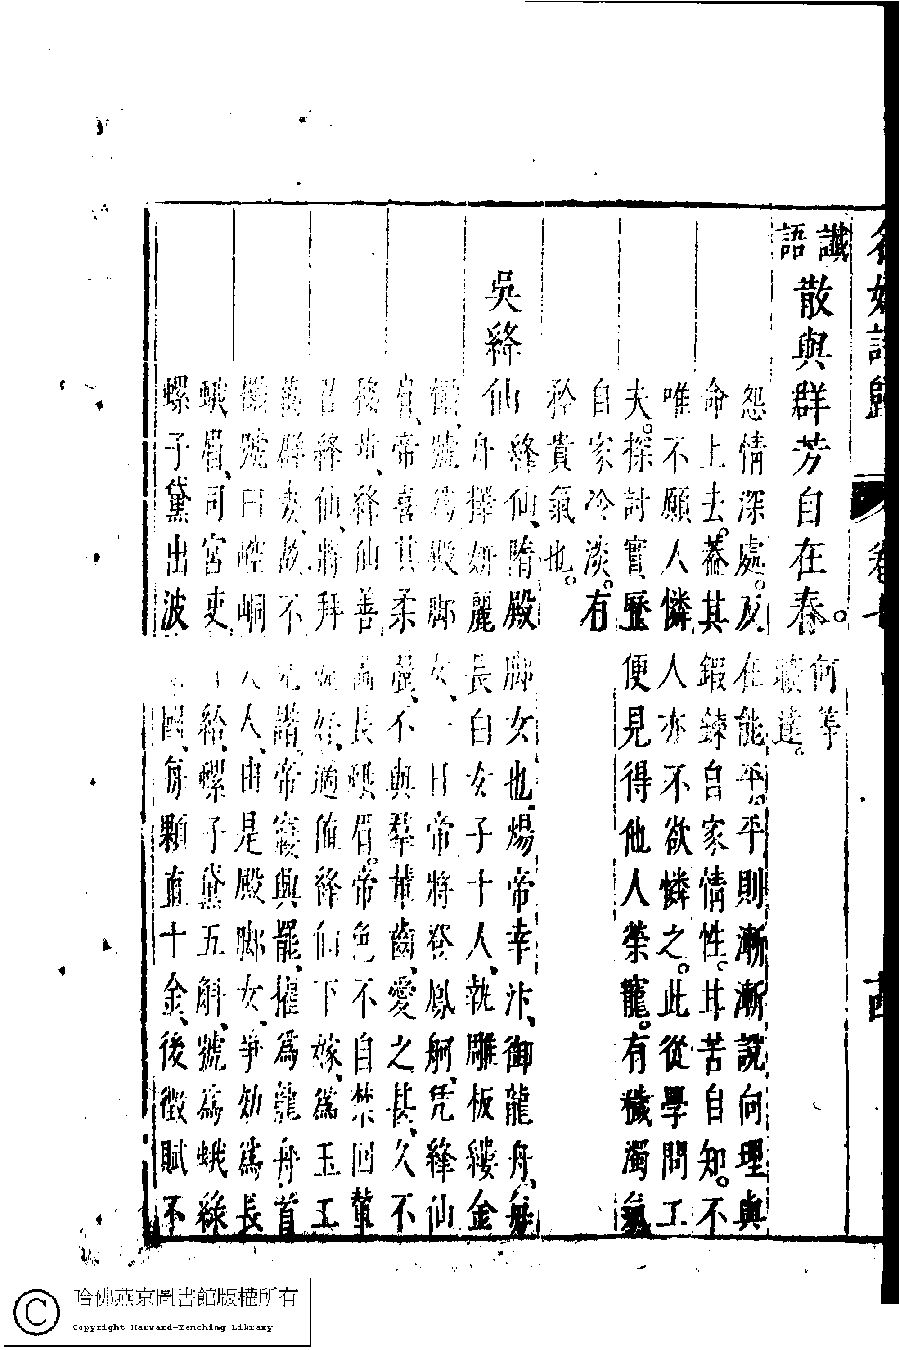 名媛詩歸　卷七
讖語　散與群芳自在春。何等曠達。
怨情深處。反在能平。平則漸漸說向理與
命上去。蓋其鍜鍊自家情性。甘苦自知。不
唯不願人憐人亦不欲憐之。此從學問工
夫。探討實歷便見得他人榮寵。有穢濁氣
自家冷淡。有
矜貴氣也。
吳絳仙　絳仙、隋殿脚女也、煬帝幸汴、御龍舟、每
舟擇妍麗長白女子十人、執雕板縷金
檝、號爲殿脚女、一日帝將登鳳舸、凭絳仙
肩、帝喜其柔麗、不與羣輩齒、愛之甚、久不
移步、絳仙善畫長蛾眉。帝色不自禁、回輦
召絳仙、將拜婕妤、適値絳仙下嫁、爲玉工
萬群妻、故不克諧、帝寢興罷、擢爲龍舟首
檝、號曰崆峒夫人、由是殿脚女、爭効爲長
蛾眉、司宮吏日給、螺子黛五斛、號爲蛾綠
螺子黛出波斯國、每顆直十金、後徵賦不
哈佛燕京圖書館版權所有
Copyright Harvard-Yenching Library